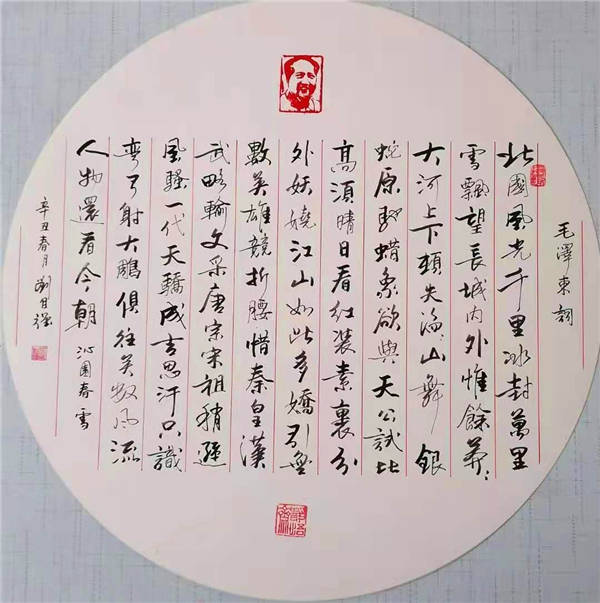 毛澤東詞
北國風光千里冰封萬里
雪飄望長城內外惟餘莽〻
大河上下頓失滔〻山舞銀
蛇原馳蜡象欲與天公試比
高須晴日看紅裝素裹分
外妖嬈江山如此多嬌引無
數英雄競折腰惜秦皇漢
武略輸文采唐宗宋祖稍遜
風騷一代天驕成吉思汗只識
彎弓射大鵰俱往矣數風流
人物還看今朝 沁園春雪
辛丑春月